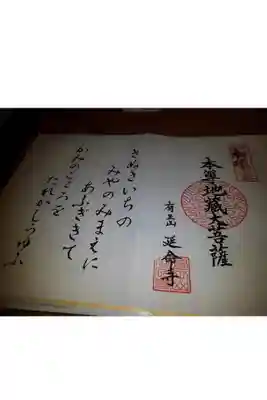 本尊地蔵大菩薩
延命寺
さぬきいちの
みやのみまえに
あふぎきて
かみのこころを
たれかしらゆふ